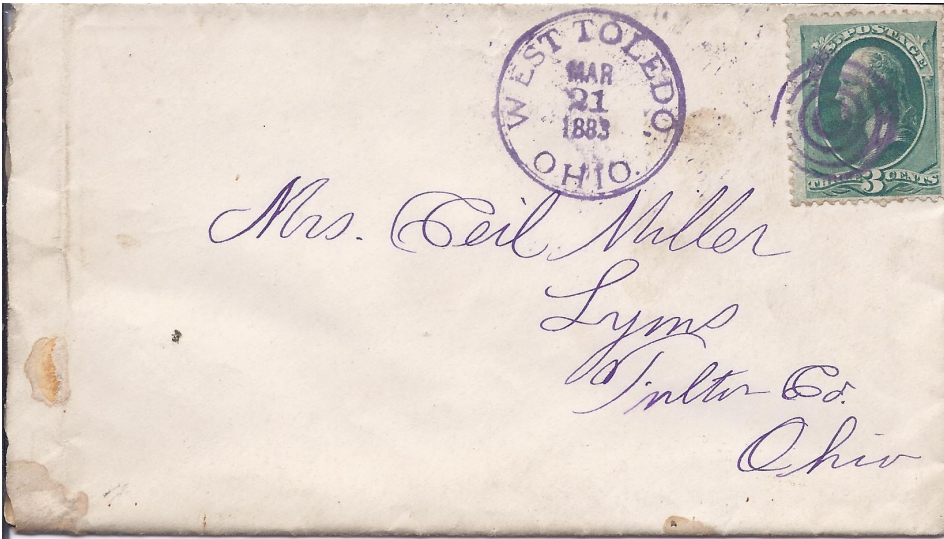 WEST TOLEDO
MAR
21
1883
OHIO.
POSTAGE
THREE 3 CENTS
Mrs. Ceil Miller
Lyons
Fulton Co.
Ohio